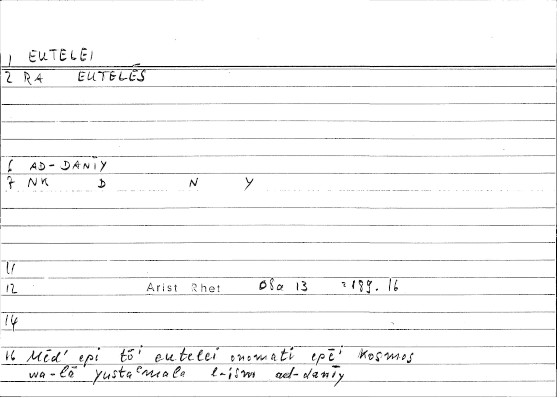 1 EUTELEI
2 RA EUTELĒS
6 AD-DANĪY
7 NK D N Y
11
12 Arist Rhet 08a 13 = 189.16
14
16 Mēd' epi tō'i eutelei onomati epē'i kosmos
wa-lā yustaʿmala l-ism ad-danīy